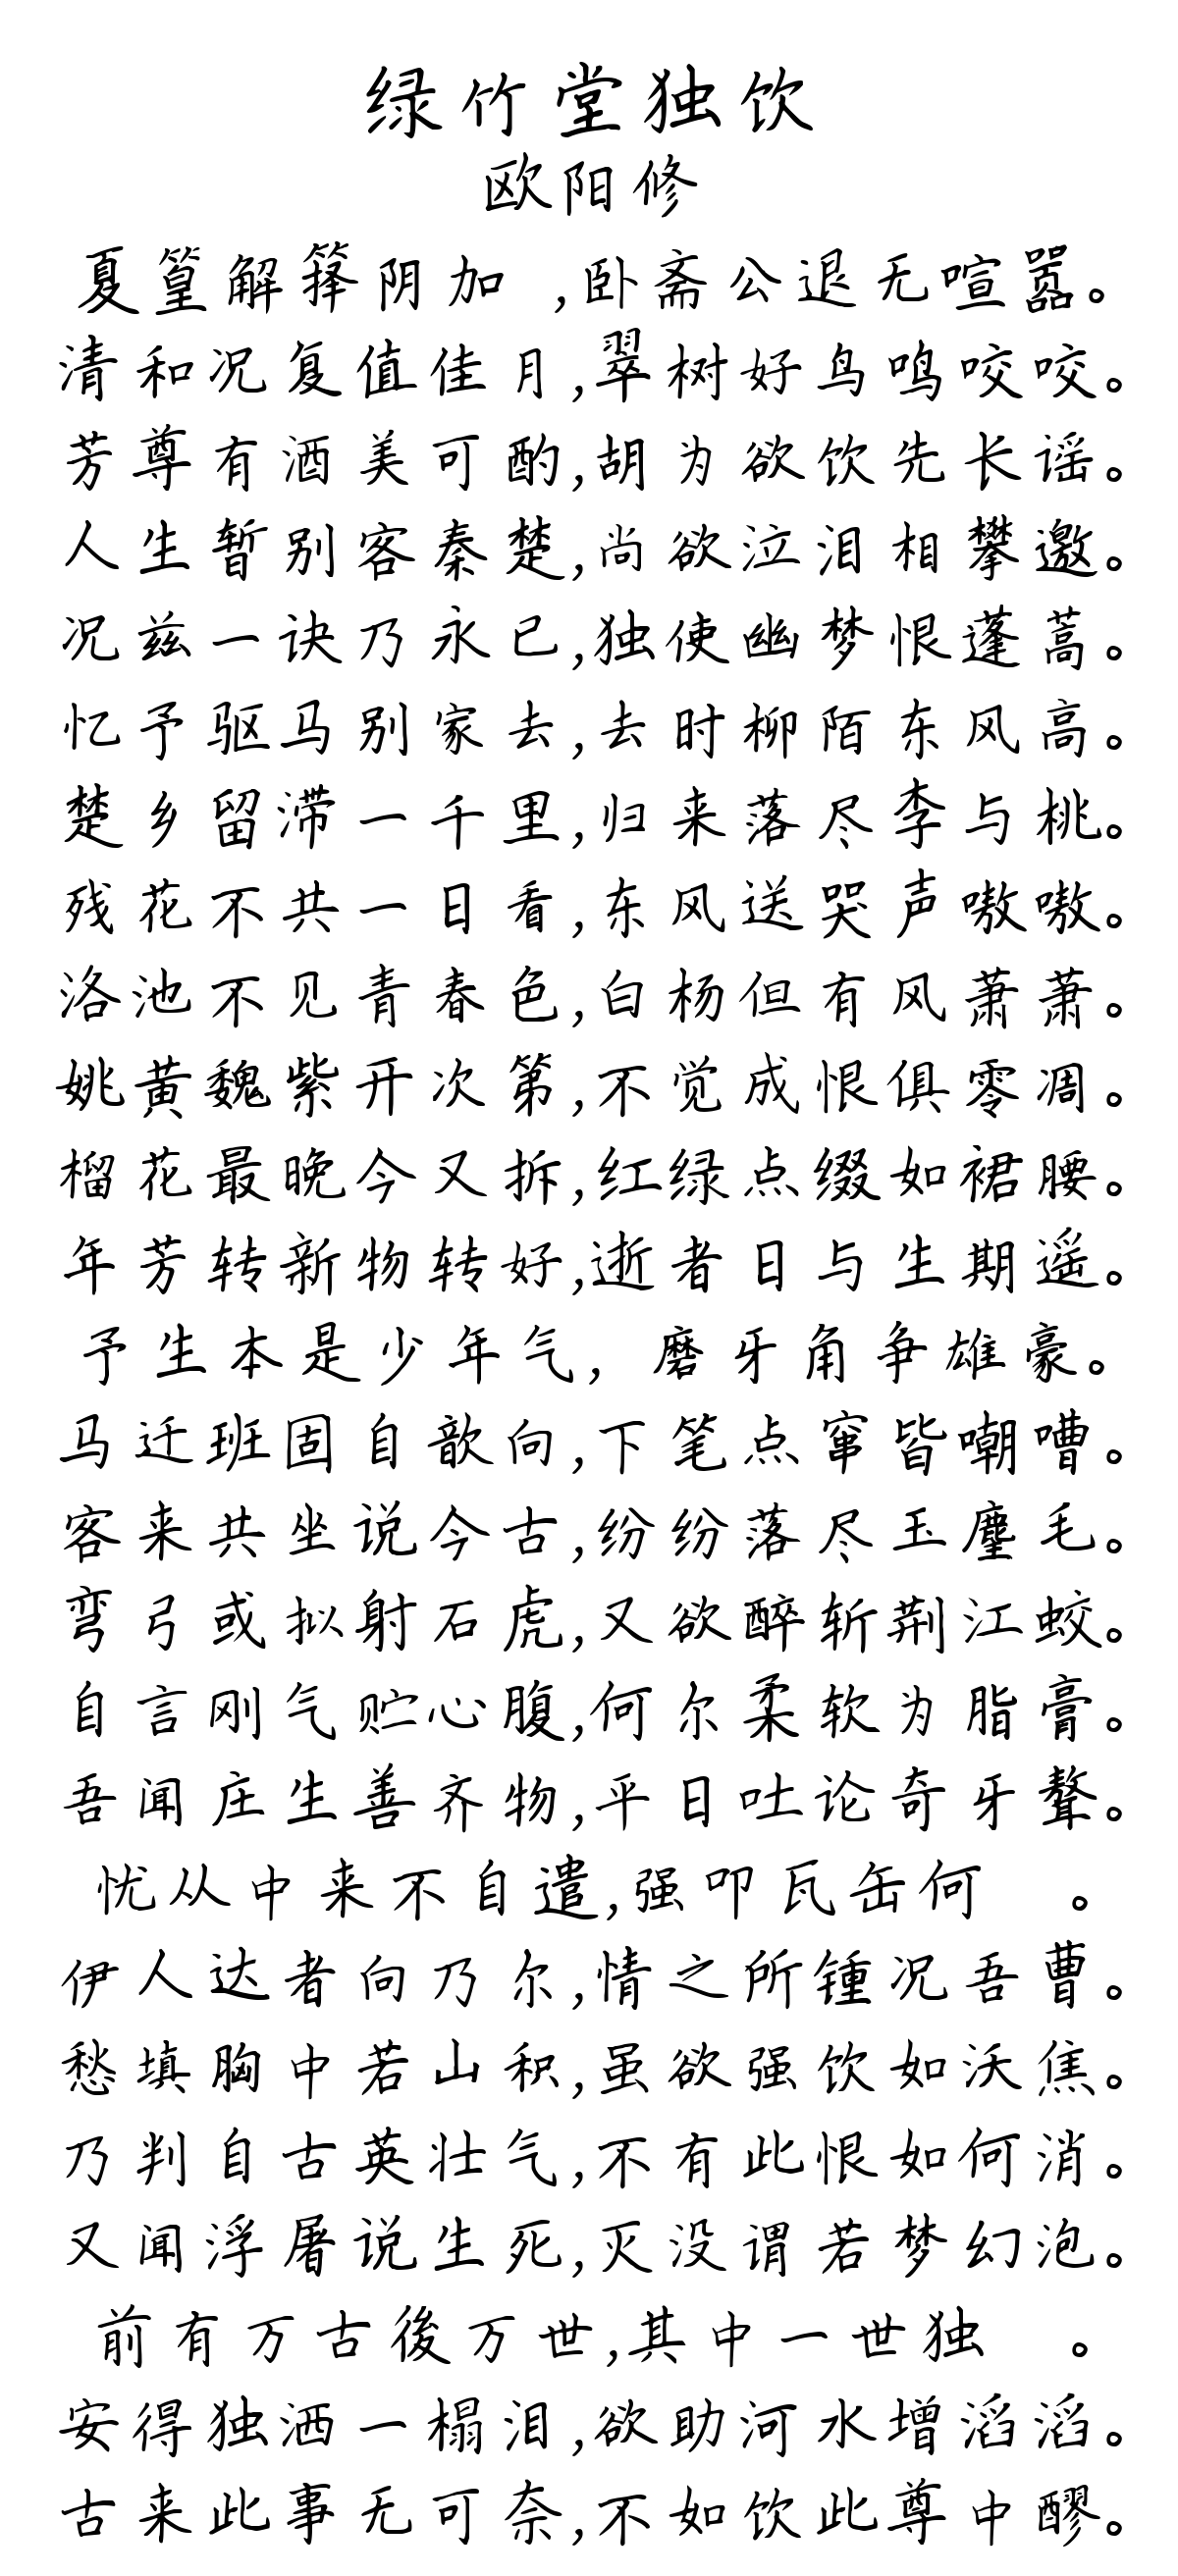 绿竹堂独饮
欧阳修
夏篁解箨阴加 ,卧斋公退无喧嚣。
清和况复值佳月,翠树好鸟鸣咬咬。
芳尊有酒美可酌,胡为欲饮先长谣。
人生暂别客秦楚,尚欲泣泪相攀邀。
况兹一诀乃永已,独使幽梦恨蓬蒿。
忆予驱马别家去,去时柳陌东风高。
楚乡留滞一千里,归来落尽李与桃。
残花不共一日看,东风送哭声嗷嗷。
洛池不见青春色,白杨但有风萧萧。
姚黄魏紫开次第,不觉成恨俱零凋。
榴花最晚今又拆,红绿点缀如裙腰。
年芳转新物转好,逝者日与生期遥。
予生本是少年气, 磨牙角争雄豪。
马迁班固自歆向,下笔点窜皆嘲嘈。
客来共坐说今古,纷纷落尽玉麈毛。
弯弓或拟射石虎,又欲醉斩荆江蛟。
自言刚气贮心腹,何尔柔软为脂膏。
吾闻庄生善齐物,平日吐论奇牙聱。
忧从中来不自遣,强叩瓦缶何 。
伊人达者向乃尔,情之所锺况吾曹。
愁填胸中若山积,虽欲强饮如沃焦。
乃判自古英壮气,不有此恨如何消。
又闻浮屠说生死,灭没谓若梦幻泡。
前有万古後万世,其中一世独 。
安得独洒一榻泪,欲助河水增滔滔。
古来此事无可奈,不如饮此尊中醪。